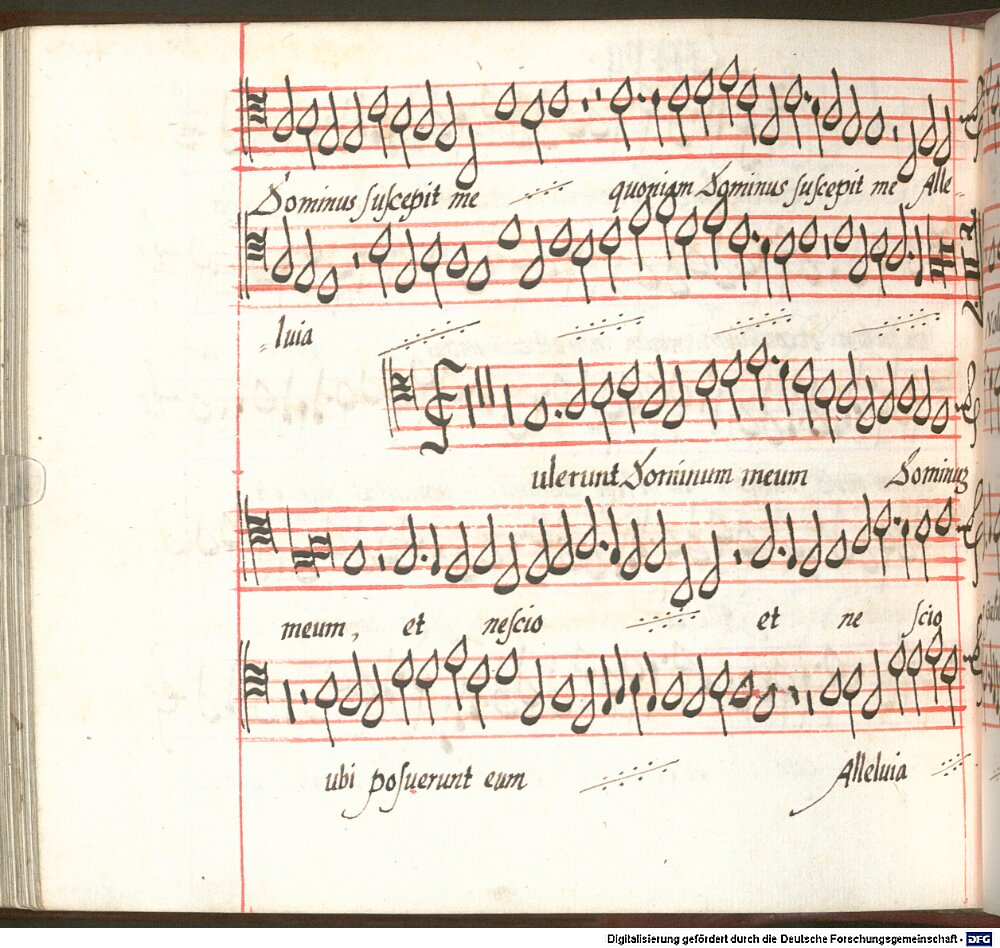 Dominus suscepit me quoniam Dominus suscepit me Alle-
luia
ulerunt Dominum meum Dominus
meum, et nescio et ne scio
ubi posuerunt eum Alleluia
Digitalisierung gefördert durch die Deutsche Forschungsgemeinschaft - DFG